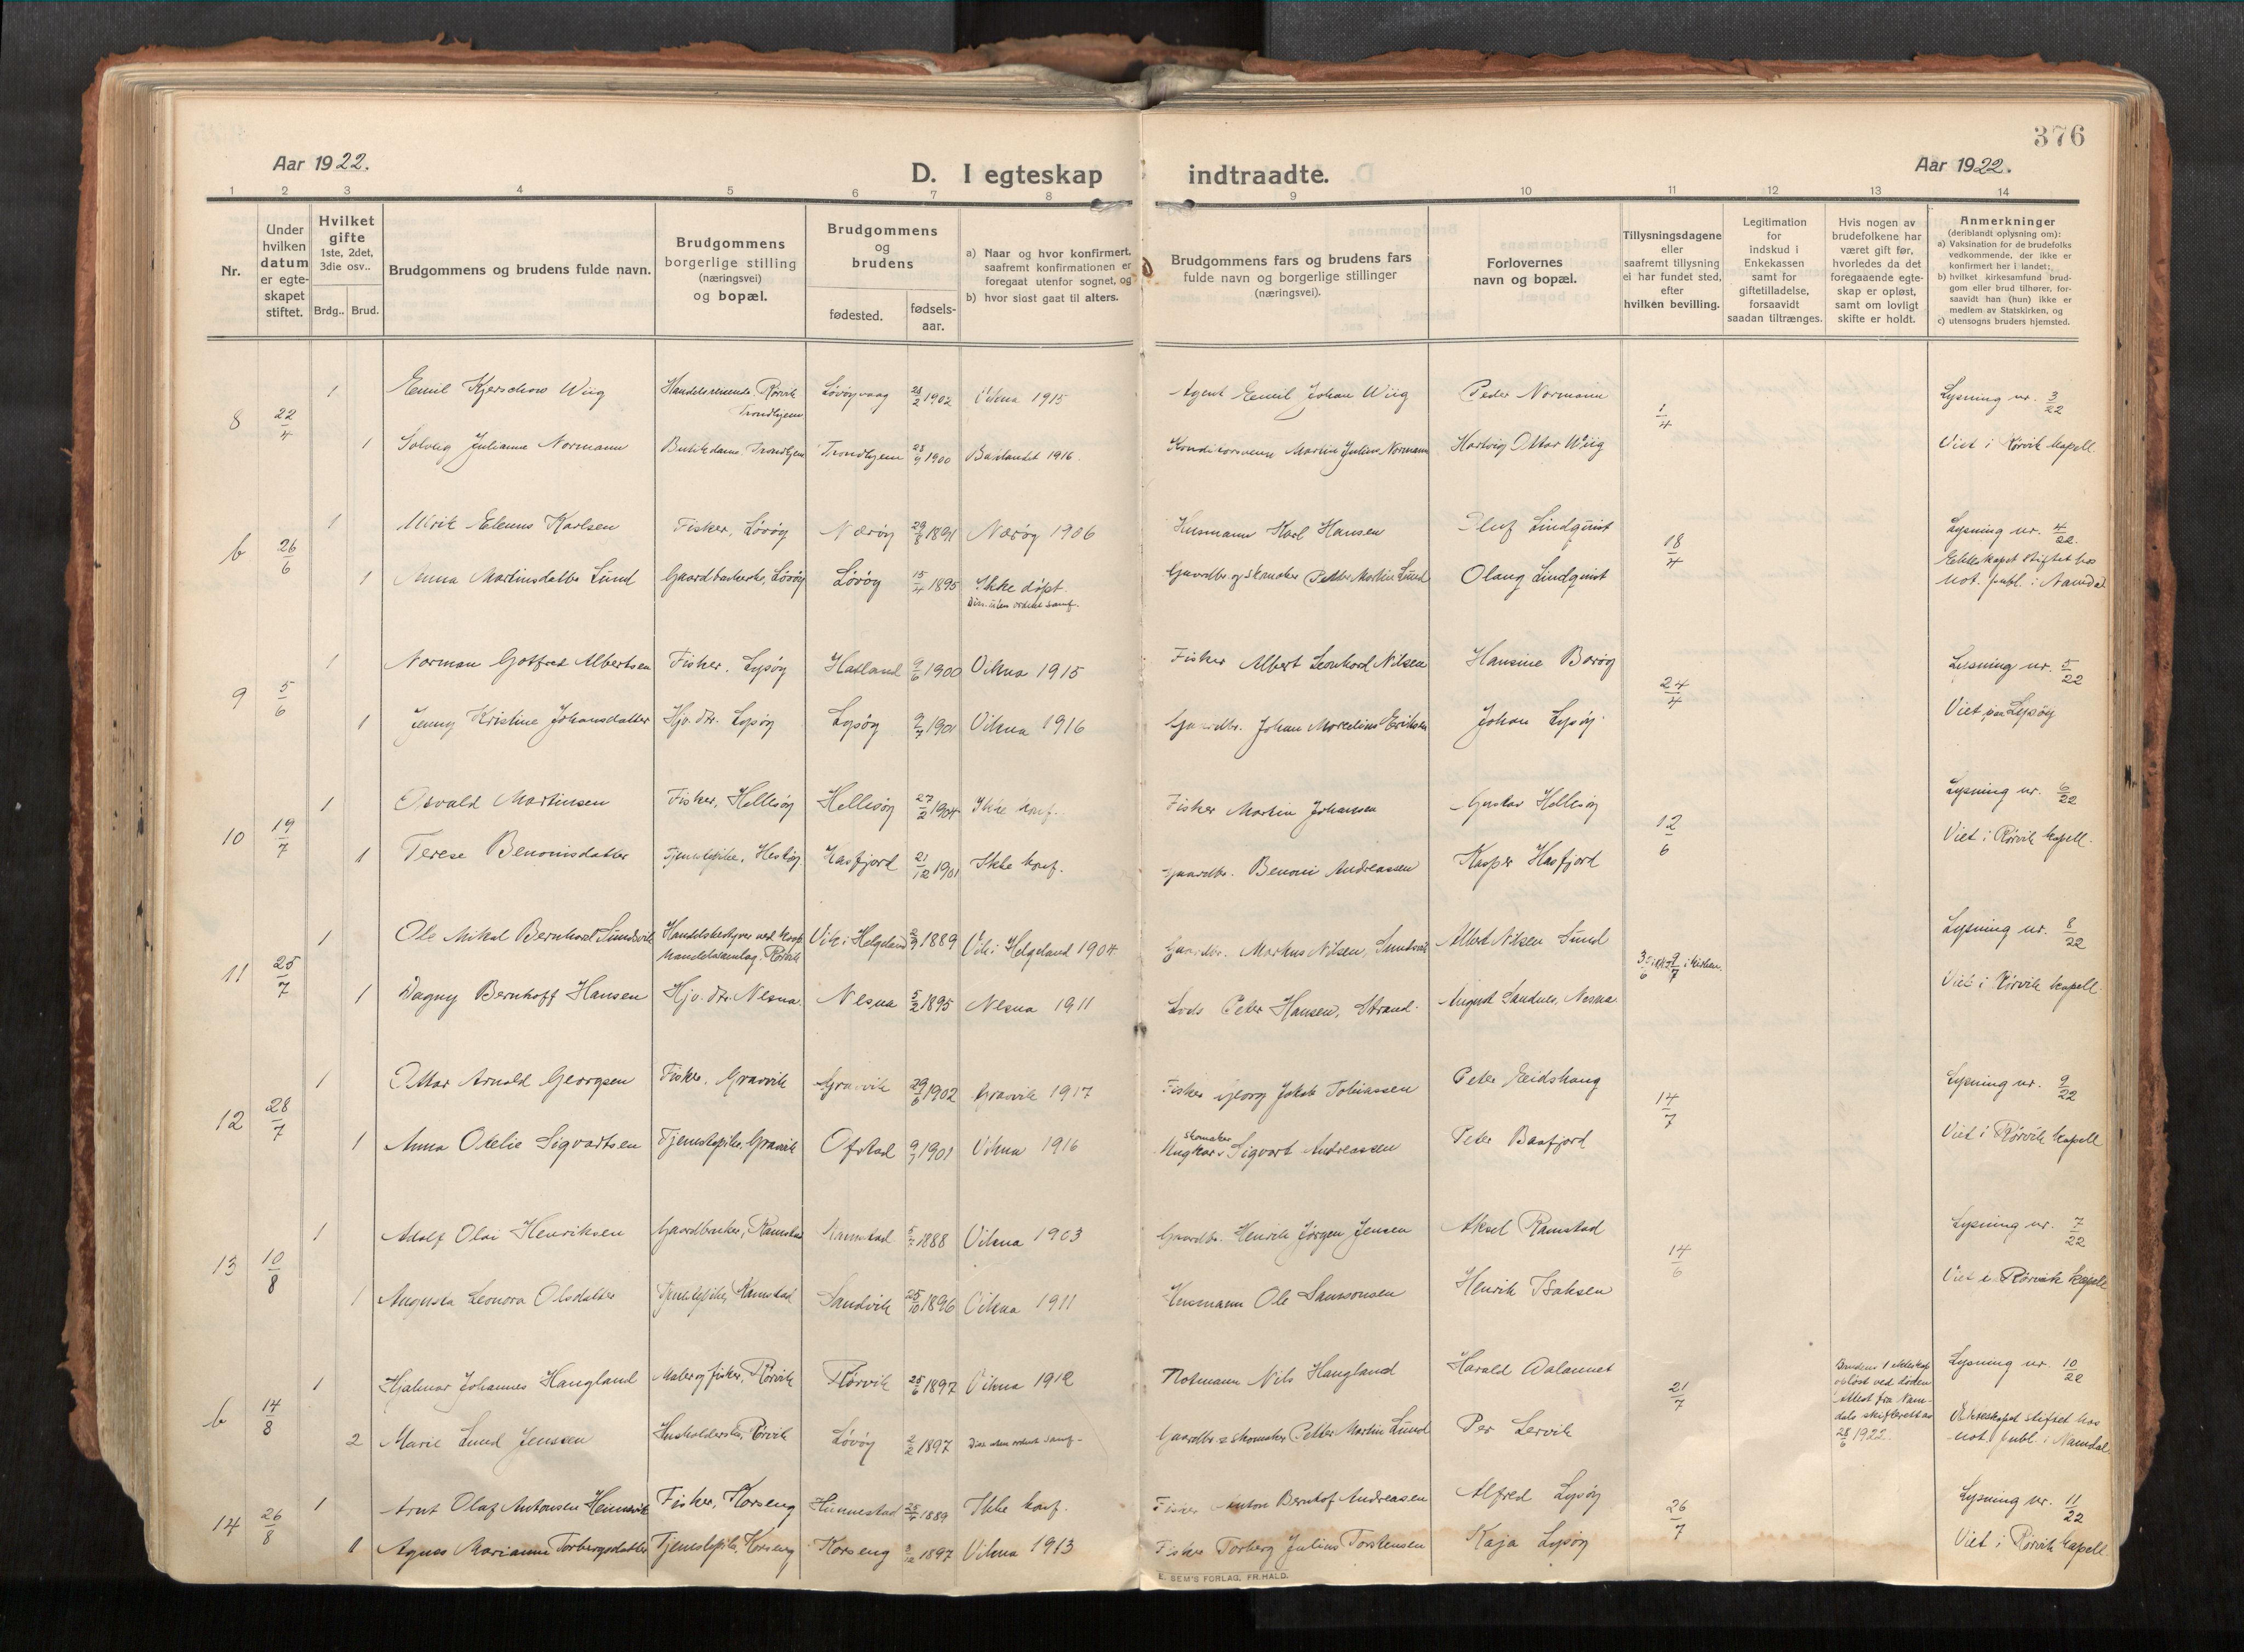 376
Aar 1922.
Aar 1922.
D. I egteskap indtraadte.
1 2 3 4 5 6 7 8 9 10 11 12 13 14
Nr.
Under hvilken datum er egte-skapet stiftet.
Hvilket gifte 1ste, 2det, 3die osv..
Brdg.. Brud.
Brudgommens og brudens fulde navn.
Brudgommens borgerlige stilling (næringsvei) og bopæl.
Brudgommens og brudens
fødested.
fødsels-aar.
a) Naar og hvor konfirmert, saafremt konfirmationen er foregaat utenfor sognet, og
b) hvor sidst gaat til alters.
Brudgommens fars og brudens fars fulde navn og borgerlige stillinger (næringsvei).
Forlovernes navn og bopæl.
Tillysningsdagene eller saafremt tillysning ei har fundet sted, efter hvilken bevilling.
Legitimation for indskud i Enkekassen samt for giftetilladelse, forsaavidt saadan tiltrænges.
Hvis nogen av brudefolkene har været gift før, hvorledes da det foregaaende egte-skap er opløst, samt om lovligt skifte er holdt.
Anmerkninger (deriblandt oplysning om):
a) Vaksination for de brudefolks vedkommende, der ikke er konfirmert her i landet;
b) hvilket kirkesamfund brud-gom eller brud tilhører, for-saavidt han (hun) ikke er medlem av Statskirken, og
c) utensogns bruders hjemsted.
8 22/4 1 Emil Kjerschow Wiig Handelsreisende, Rørvik Trondhjem Løvøyvaag 1902 Vikna 1915 Agent Emil Johan Wiig Peder Normann 1/4 Lysning nr. 3/22
1 Solveig Julianne Normann Butikdame, Trondhjem Trondhjem 1900 Baklandet 1916 Konditorsvenn Martin Julius Normann Hartvig Ottar Wiig Viet i Rørvik kapell.
b 26/6 1 Ulrik Elenus Karlsen Fisker, Løvøy Nærøy 29/8 1891 Nærøy 1906 Husmann Karl Hansen Oluf Lindquist 18/4 Lysning nr. 4/22.
Ekteskapet stiftet hos not. publ. i Namdal
1 Anna Martinsdatter Lund Løvøy Løvøy 15/4 1895 Ikke døpt. Diss. uten ordnet samf. Gaardbr. og skomaker Petter Martin Lund Olaug Lindquist
9 5/6 1 Norman Gotfred Albertsen Fisker, Lysøy Hatland 9/6 1900 Vikna 1915 Fisker Albert Leonhard Nilsen Hansine Borøy 24/4 Lysning nr. 5/22
1 Jenny Kristine Johansdatter Hjv. dtr. Lysøy Lysøy 1901 Vikna 1916 Gaardbr. Johan Marcelius Eriksen Johan Lysøy Viet paa Lysøy
10 19/7 1 Osvald Martinsen Fisker, Hellesøy Hellesøy 27/2 1904 Ikke konf. Fisker Martin Johansen Gustav Hellesøy 12/6 Lysning nr. 6/22
1 Terese Benonisdatter Tjenestepike, Hestøy Hasfjord 21/12 1901 Ikke konf. Gaardbr. Benoni Andreassen Kasper Hasfjord Viet i Rørvik kapell.
11 25/7 1 Ole Mikal Bernhard Sundsvik Handelsbestyrer ved Koop. handelslaug, Rørvik Vik i Helgeland 1889 Vik i Helgeland 1904 Gaardbr. Markus Nilsen, Sundsvik Albert Nilsen Sund 9/7 i kirken. Lysning nr. 8/22
1 Dagny Bernhoff Hansen Hjv. dtr. Nesna Nesna 5/2 1895 Nesna 1911 Lods Peter Hansen, Strand. August Sandnes, Nesna Viet i Rørvik kapell.
12 28/7 1 Ottar Arnold Georgsen Fisker, Gravvik Gravvik 29/6 1902 Gravvik 1917 Fisker Georg Jakob Tobiassen Peter Eidshaug 14/7 Lysning nr. 9/22
1 Anna Otelie Sigvartsen Tjenestepike, Gravvik Ofstad 1901 Vikna 1916 skomaker Ungkar Sigvart Andreassen Peter Baafjord Viet i Rørvik kapell
13 10/8 1 Adolf Olai Henriksen Gaardbruker, Ramstad Ramstad 1888 Vikna 1903 Gaardbr. Henrik Jørgen Jensen Aksel Ramstad 14/6 Lysning nr. 7/22
1 Augusta Leonora Olsdatter Tjenestepike, Ramstad Sandvik 25/10 1896 Vikna 1911 Husmann Ole Samsonsen Henrik Isaksen Viet i Rørvik kapell
b 14/8 1 Hjalmar Johannes Haugland Maler og fisker, Rørvik Rørvik 25/6 1897 Vikna 1912 Notmann Nils Haugland Harald Aalannet 21/7 Brudens 1 ekteskap opløst ved døden Attest fra Nam-dals skifterett av 28/6 1922. Lysning nr. 10/22
2 Marie Lund Jenssen Husholderske, Rørvik Løvøy 2/2 1897 Diss. uten ordnet samf. Gaardbr. & skomaker Petter Martin Lund Per Lervik Ekteskapet stiftet hos not. publ. i Namdal
14 26/8 1 Arnt Olaf Antonsen Heimsvik Fisker, Korseng Hunnestad 1889 Ikke konf. Fisker Anton Bernhof Andreasen Alfred Lysøy 26/7 Lysning nr. 11/22
1 Agnes Marianne Torbergsdatter Tjenestepike, Korseng Korseng 1897 Vikna 1913 Fisker Torberg Julius Torstensen Kaja Lysøy Viet i Rørvik kapell.
E. SEM'S FORLAG, FR.HALD.